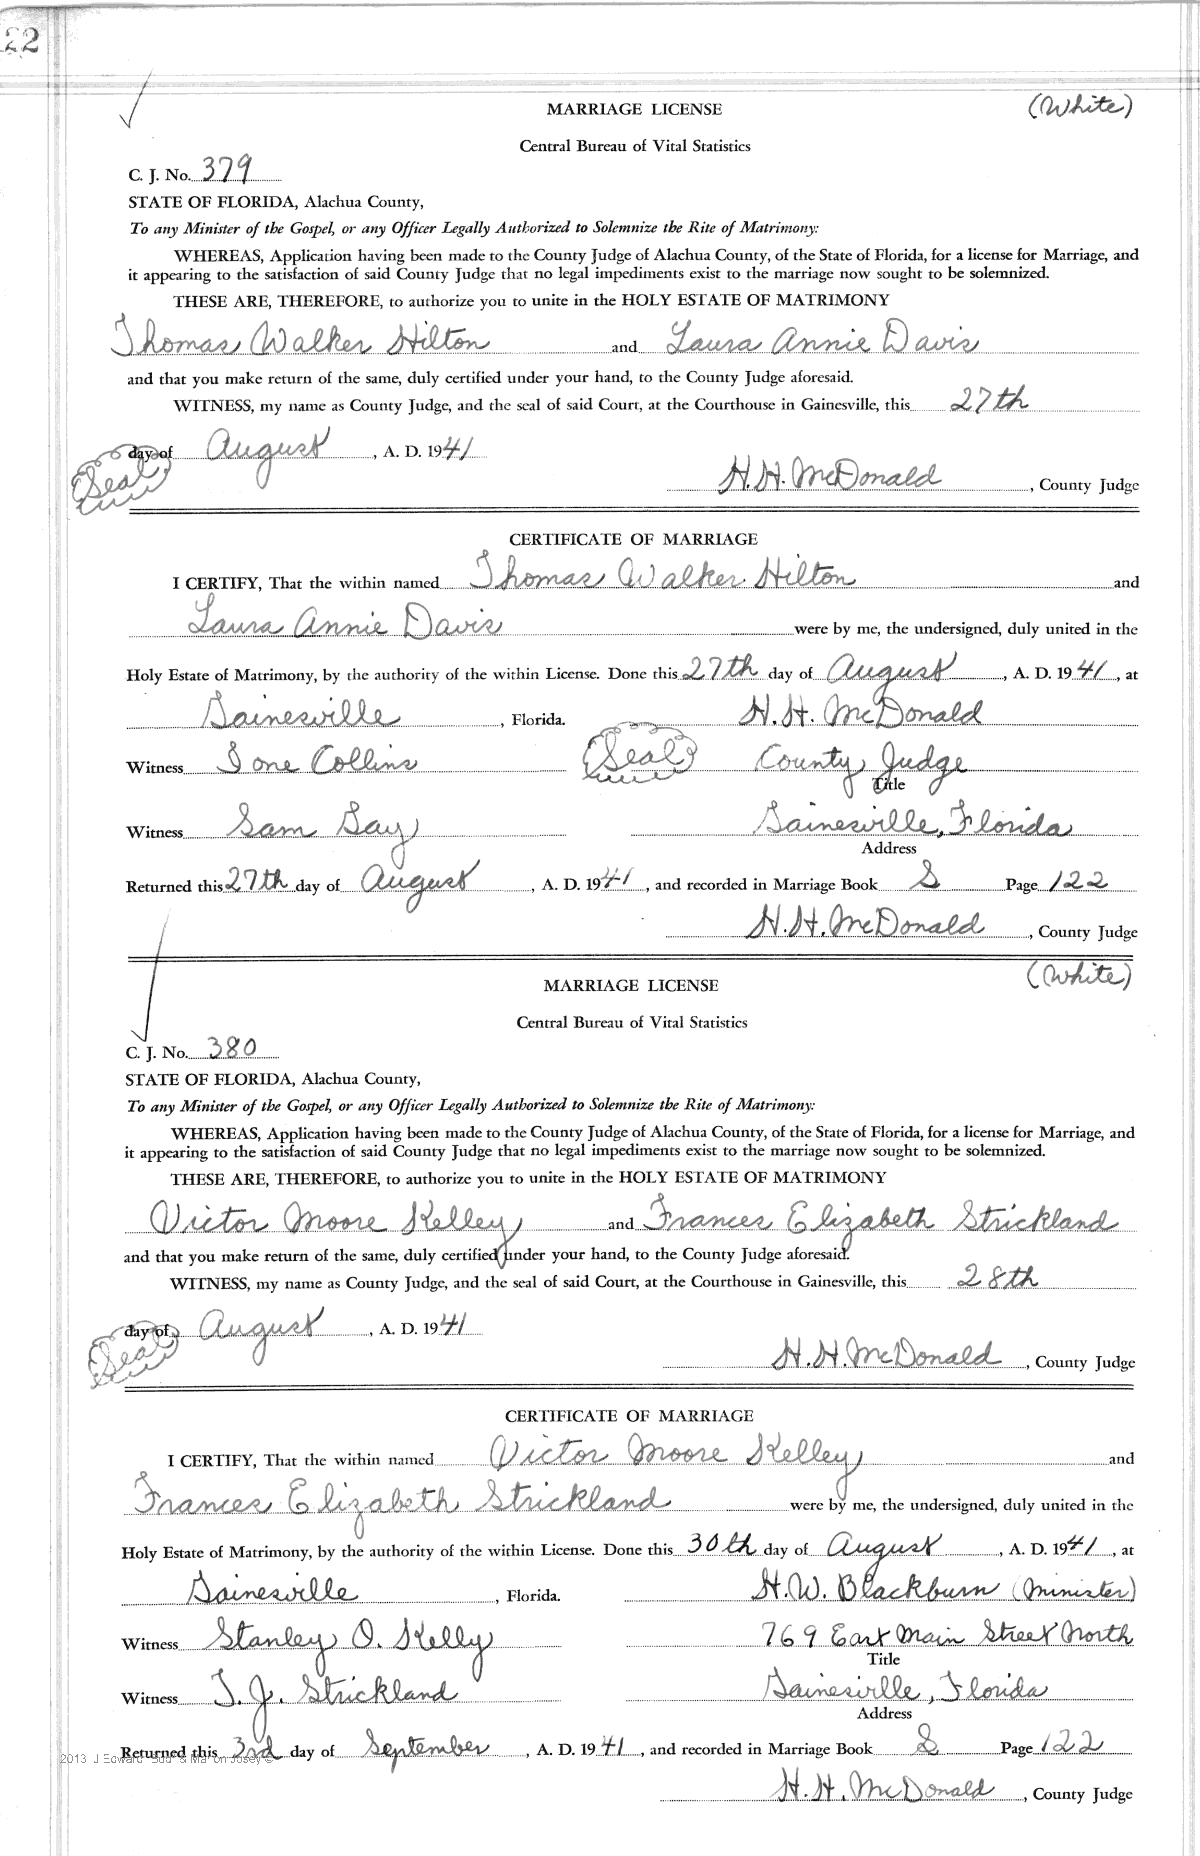 22
MARRIAGE LICENSE (White)
Central Bureau of Vital Statistics
C. J. No. 379
STATE OF FLORIDA, Alachua County,
To any Minister of the Gospel, or any Officer Legally Authorized to Solemnize the Rite of Matrimony:
WHEREAS, Application having been made to the County Judge of Alachua County, of the State of Florida, for a license for Marriage, and
it appearing to the satisfaction of said County Judge that no legal impediments exist to the marriage now sought to be solemnized.
THESE ARE, THEREFORE, to authorize you to unite in the HOLY ESTATE OF MATRIMONY
Thomas Walker Hilton and Laura Annie Davis
and that you make return of the same, duly certified under your hand, to the County Judge aforesaid.
WITNESS, my name as County Judge, and the seal of said Court, at the Courthouse in Gainesville, this 27th
day of August, A. D. 1941
(Seal) H. H. McDonald, County Judge
CERTIFICATE OF MARRIAGE
I CERTIFY, That the within named Thomas Walker Hilton and
Laura Annie Davis were by me, the undersigned, duly united in the
Holy Estate of Matrimony, by the authority of the within License. Done this 27th day of August, A. D. 1941, at
Gainesville, Florida. H. H. McDonald
Witness Ione Collins (Seal) County Judge
Title
Witness Sam Gay Gainesville, Florida
Address
Returned this 27th day of August, A. D. 1941, and recorded in Marriage Book S Page 122
H. H. McDonald, County Judge
MARRIAGE LICENSE (White)
Central Bureau of Vital Statistics
C. J. No. 380
STATE OF FLORIDA, Alachua County,
To any Minister of the Gospel, or any Officer Legally Authorized to Solemnize the Rite of Matrimony:
WHEREAS, Application having been made to the County Judge of Alachua County, of the State of Florida, for a license for Marriage, and
it appearing to the satisfaction of said County Judge that no legal impediments exist to the marriage now sought to be solemnized.
THESE ARE, THEREFORE, to authorize you to unite in the HOLY ESTATE OF MATRIMONY
Victor Moore Kelley and Frances Elizabeth Strickland
and that you make return of the same, duly certified under your hand, to the County Judge aforesaid.
WITNESS, my name as County Judge, and the seal of said Court, at the Courthouse in Gainesville, this 28th
day of August, A. D. 1941
(Seal) H. H. McDonald, County Judge
CERTIFICATE OF MARRIAGE
I CERTIFY, That the within named Victor Moore Kelley and
Frances Elizabeth Strickland were by me, the undersigned, duly united in the
Holy Estate of Matrimony, by the authority of the within License. Done this 30th day of August, A. D. 1941, at
Gainesville, Florida. H. W. Blackburn (Minister)
Witness Stanley O. Kelly 769 East Main Street North
Title
Witness T. J. Strickland Gainesville, Florida
Address
Returned this 3rd day of September, A. D. 1941, and recorded in Marriage Book S Page 122
2013 J Edward "Bud" & Marion Josey ©
H. H. McDonald, County Judge